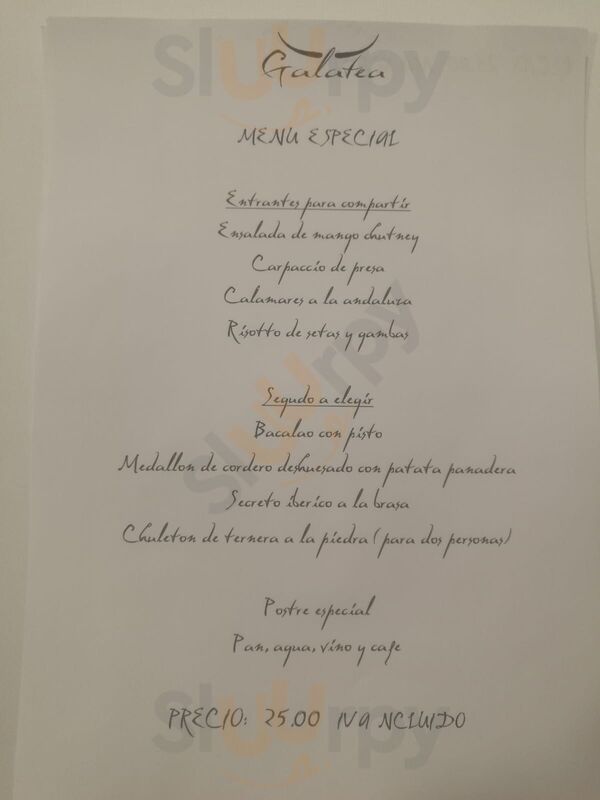 Galatea
MENU ESPECIAL
Entrantes para compartir
Ensalada de mango chutney
Carpaccio de presa
Calamares a la andaluza
Risotto de setas y gambas
Segudo a elegir
Bacalao con pisto
Medallon de cordero deshuesado con patata panadera
Secreto iberico a la brasa
Chuleton de ternera a la piedra (para dos personas)
Postre especial
Pan, agua, vino y cafe
PRECIO: 25.00 IVA NCLUIDO
Slurpy
Slurpy
Slurpy